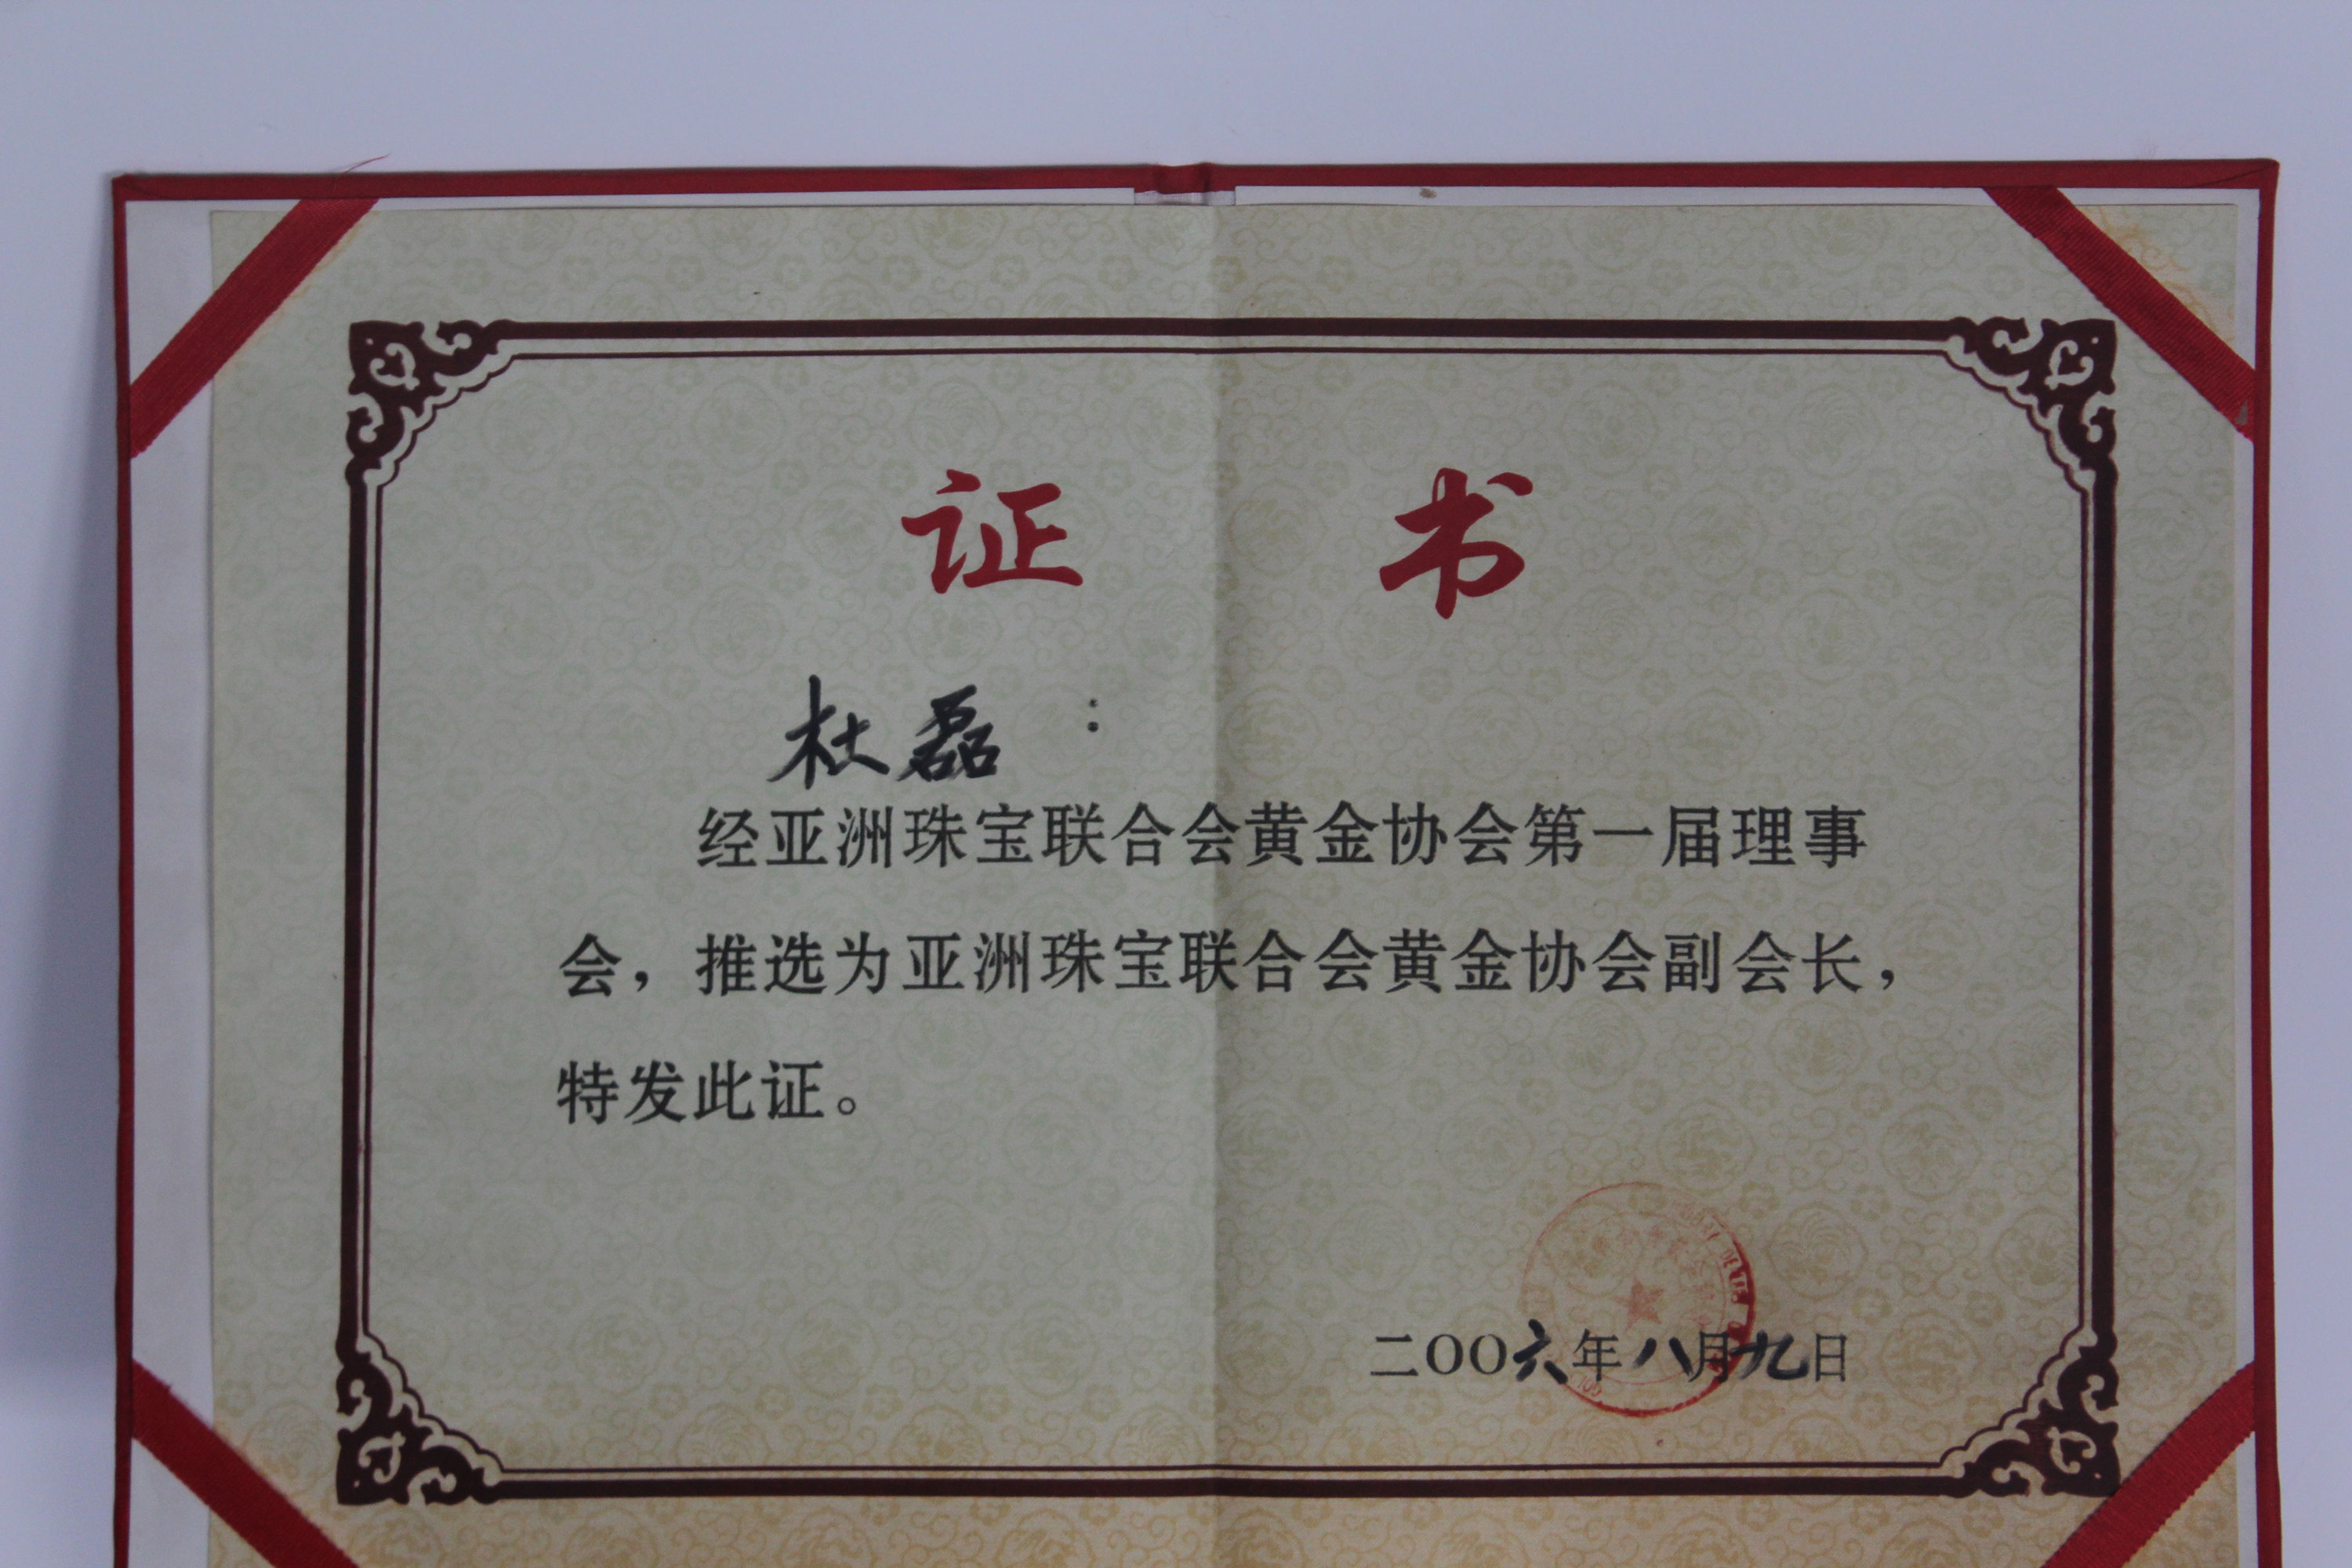 证书
杜磊：
经亚洲珠宝联合会黄金协会第一届理事
会，推选为亚洲珠宝联合会黄金协会副会长，
特发此证。
二〇〇六年八月九日